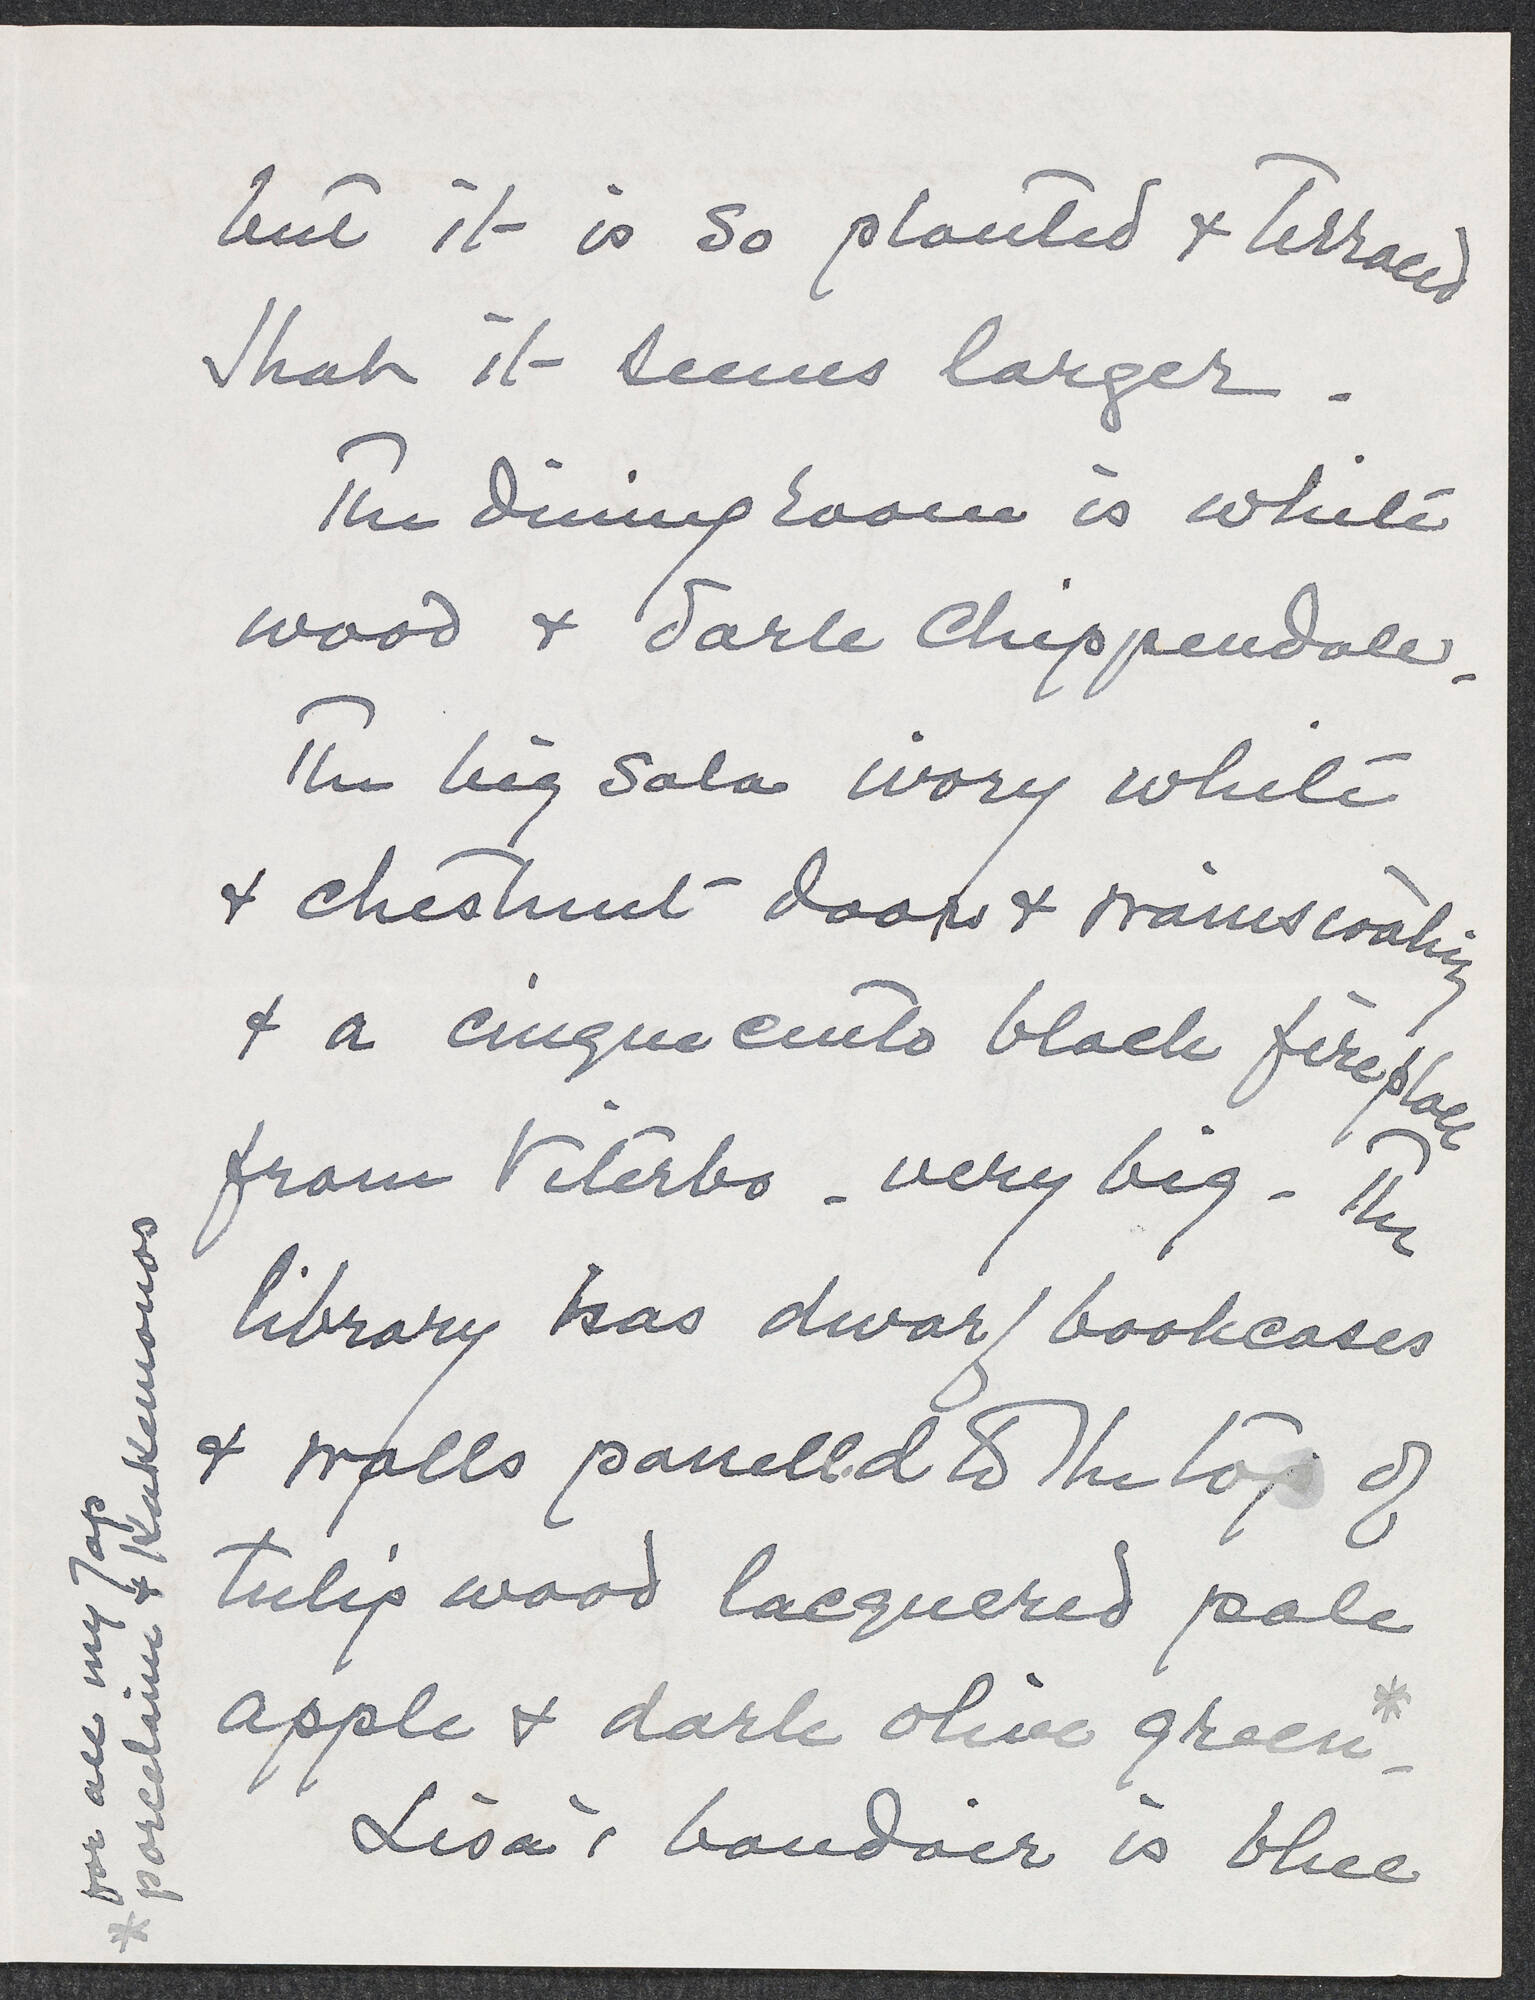 but it is so planted & terraced
that it seems larger -
The dining room is white
wood & dark Chippendale -
The big Sala ivory white
& chestnut doors & wainscoting
& a cinquecento black fireplace
from Viterbo - very big - The
library has dwarf bookcases
& walls panelled to the top of
tulip wood lacquered pale
apple & dark olive green* -
Lisa's boudoir is blue
* for all my Jap
porcelains & Kakemonos